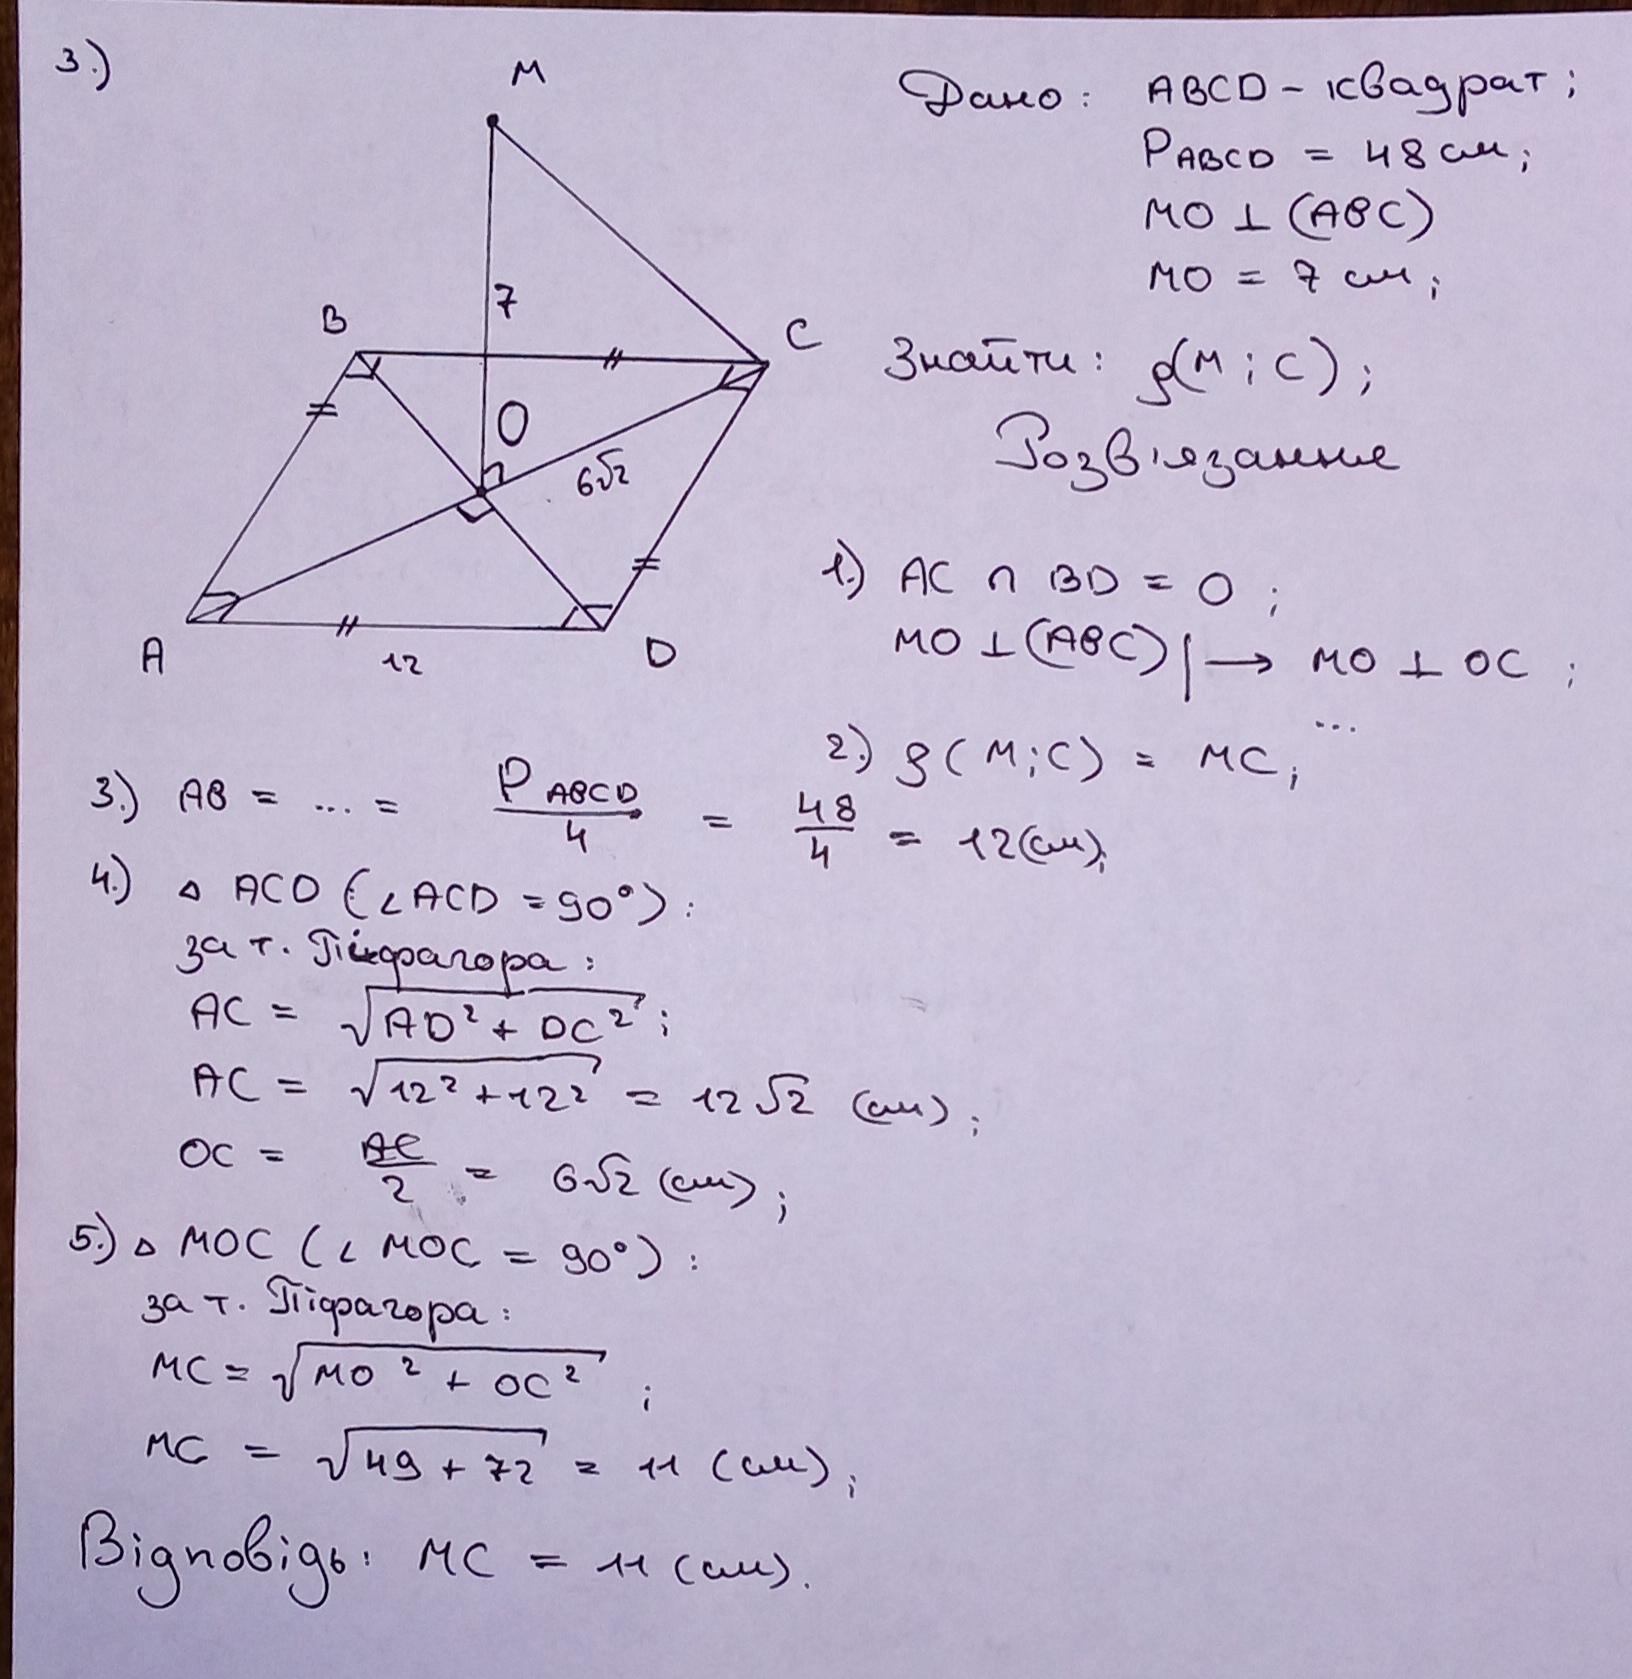 3.)
M
Дано: ABCD - квадрат;
P ABCD = 48 см;
MO ⊥ (ABC)
MO = 7 см;
7
B
C
Знайти: ρ(M; C);
O
6√2
Розв'язання
A
12
D
1.) AC ∩ BD = O;
MO ⊥ (ABC) | → MO ⊥ OC;
...
2.) ρ(M; C) = MC;
3.) AB = ... = P ABCD / 4 = 48/4 = 12(см);
4.) △ ACD (∠ACD = 90°):
за т. Піфагора:
AC = √(AD² + DC²);
AC = √(12² + 12²) = 12√2 (см);
OC = AC/2 = 6√2 (см);
5.) △ MOC (∠ MOC = 90°):
за т. Піфагора:
MC = √(MO² + OC²);
MC = √(49 + 72) = 11 (см);
Відповідь: MC = 11 (см).